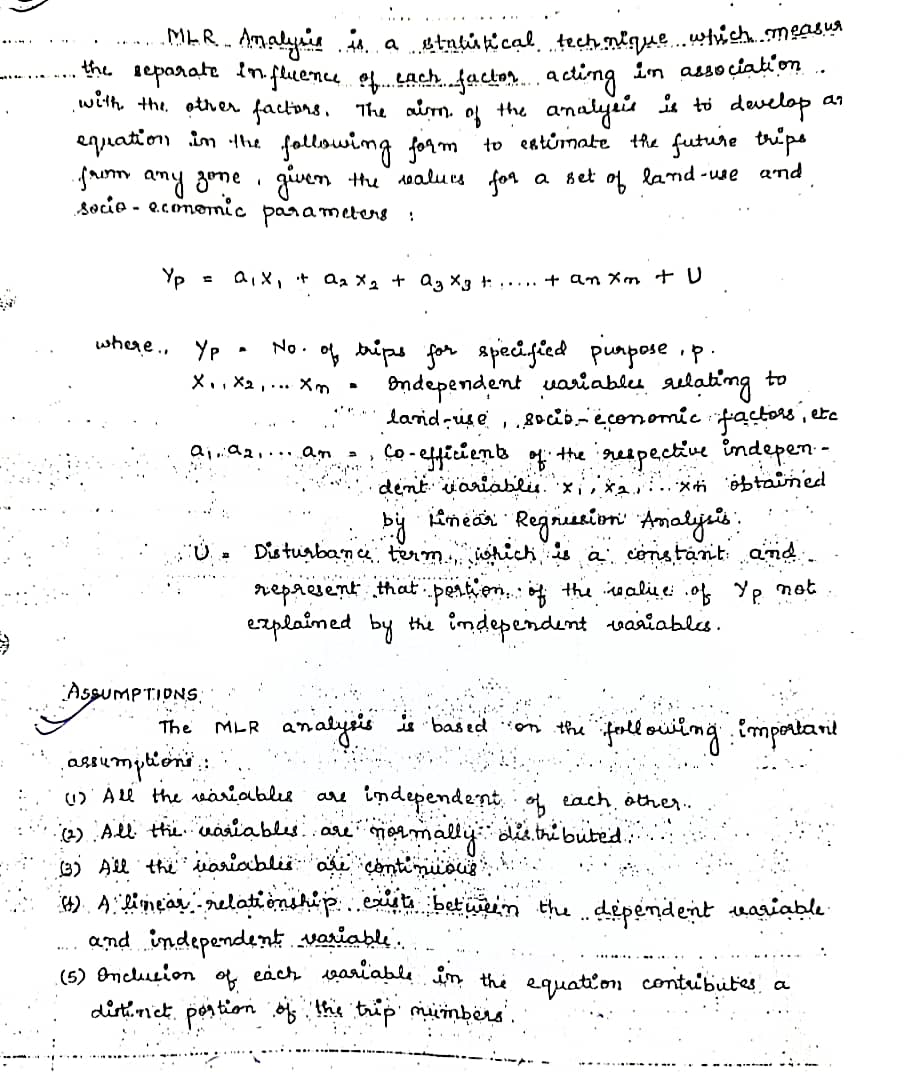 MLR Analysis is a statistical technique which measur
the separate Influence of each factor acting in association
with the other factors. The aim of the analysis is to develop an
equation in the following form to estimate the future trips
from any zone, given the values for a set of land-use and
socio-economic parameters :
Yp = a₁X₁ + a₂X₂ + a₃X₃ + ..... + an Xn + U
where., Yp = No. of trips for specified purpose, p.
X₁, X₂, ... Xn = Independent variables relating to
land-use, socio-economic factors, etc
a₁, a₂, ... an = Co-efficients of the respective indepen-
dent variables x₁, x₂, ... xn obtained
by Linear Regression Analysis.
U = Disturbance term, which is a constant and
represent that portion of the value of Yp not
explained by the independent variables.
ASSUMPTIONS
The MLR analysis is based on the following important
assumptions :
(1) All the variables are independent of each other.
(2) All the variables are normally distributed.
(3) All the variables are continuous
(4) A linear-relationship exists between the dependent variable
and independent variable.
(5) Inclusion of each variable in the equation contributes a
distinct portion of the trip numbers.